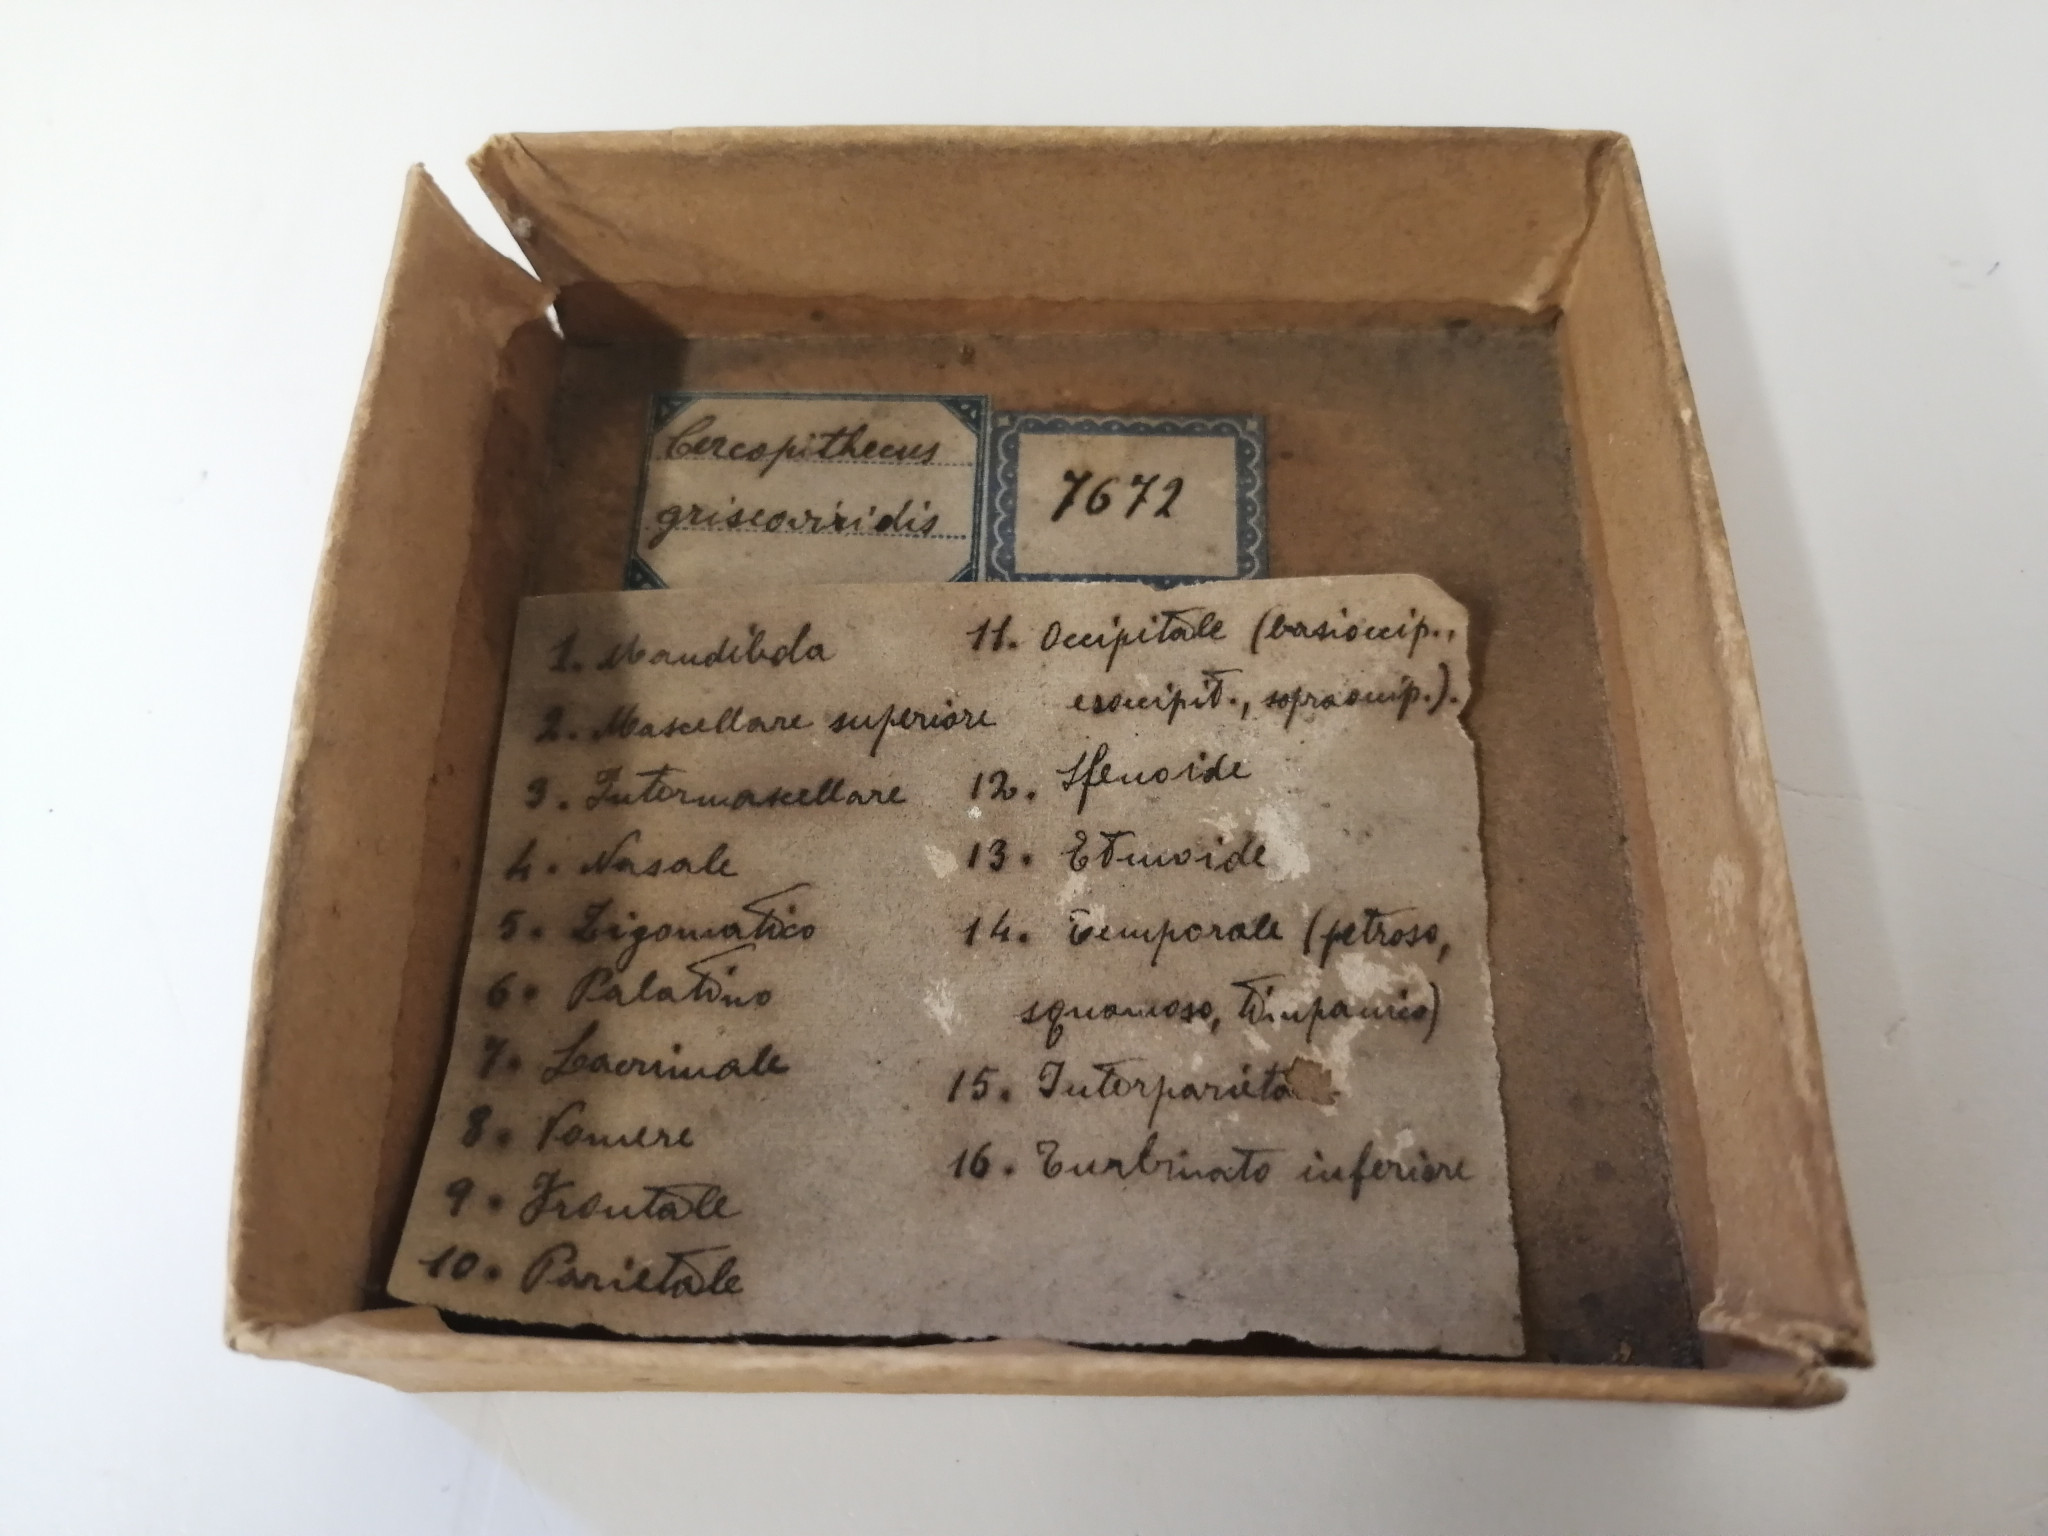 Cercopithecus
griseoviridis
7672
1. Mandibola
2. Mascellare superiore
3. Intermascellare
4. Nasale
5. Zigomatico
6. Palatino
7. Lacrimale
8. Vomere
9. Frontale
10. Parietale
11. Occipitale (basioccip.,
esoccipit., sopraoccip.).
12. Sfenoide
13. Etmoide
14. Temporale (petroso,
squamoso, timpanico)
15. Interparieta
16. Turbinato inferiore